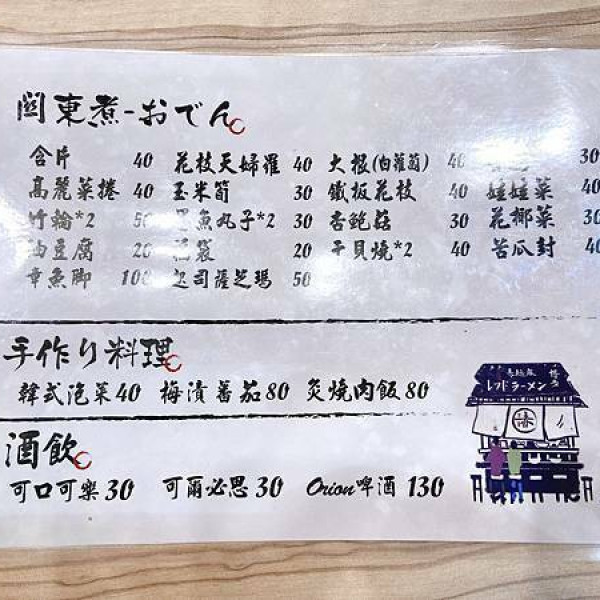 關東煮-おでん
含片 40 花枝天婦羅 40 大根(白蘿蔔) 40 30
高麗菜捲 40 玉米筍 30 鐵板花枝 40 娃娃菜 40
竹輪*2 50 魚丸子*2 30 杏鮑菇 30 花椰菜 30
油豆腐 20 福袋 20 干貝燒*2 40 苦瓜封 40
章魚脚 100 起司薩芝瑪 50
手作り料理
韓式泡菜40 梅漬番茄80 炙燒肉飯80
酒飲
可口可樂30 可爾必思30 Orion啤酒 130
ラーメン 博多